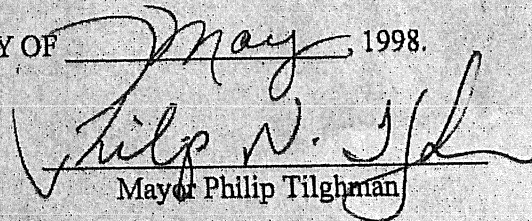 Y OF May, 1998.
Philip N.
Mayor Philip Tilghman